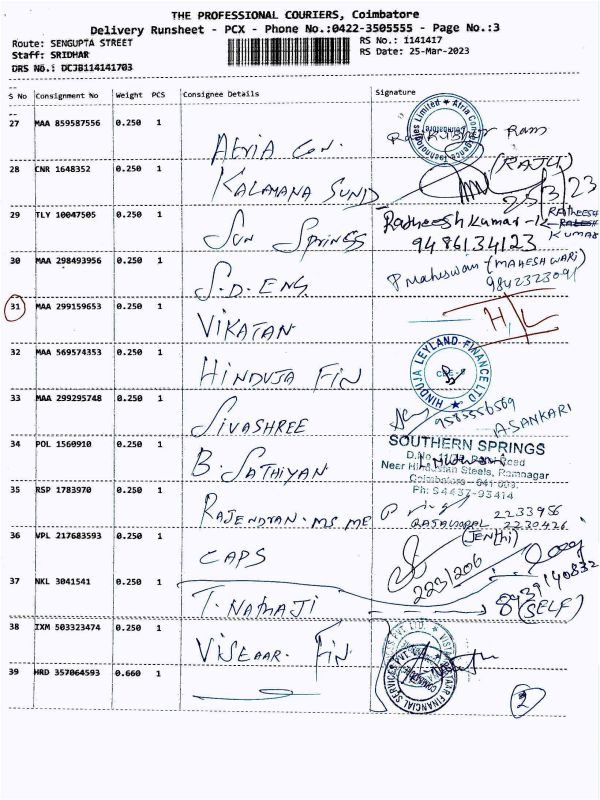 THE PROFESSIONAL COURIERS, Coimbatore
Delivery Runsheet - PCX - Phone No.:0422-3505555 - Page No.:3
Route: SENGUPTA STREET
RS No.: 1141417
Staff: SRIDHAR
RS Date: 25-Mar-2023
DRS No.: DCJB114141703
S No Consignment No Weight PCS Consignee Details Signature
27 MAA 859587556 0.250 1 Atria Con. Ram
28 CNR 1648352 0.250 1 KALAMANA SUND (RAJU) 25/3/23
29 TLY 10047505 0.250 1 SUN SPRINGS Ratheesh Kumar RATHEESH KUMAR
9486134123
30 MAA 298493956 0.250 1 S.D. ENG P Maheswari (MAHESHWARI)
9842323091
31 MAA 299159653 0.250 1 VIKATAN H/L
32 MAA 569574353 0.250 1 HINDUJA FIN HINDUJA LEYLAND FINANCE LTD
33 MAA 299295748 0.250 1 SIVASHREE 9585556569 A. SANKARI
34 POL 1560910 0.250 1 B. SATHIYAN SOUTHERN SPRINGS
Near Hindustan Steels, Ramnagar
Coimbatore - 641 009.
Ph: 94437-93414
35 RSP 1783970 0.250 1 RAJENDRAN. MS. ME 2233986
RAJAGOPAL 2230426
36 VPL 217683593 0.250 1 CAPS (Jenthi)
223/206
37 NKL 3041541 0.250 1 T. NATHAJI (SELF)
38 IXM 503323474 0.250 1 VISTAAR. FIN
39 HRD 357064593 0.660 1
2